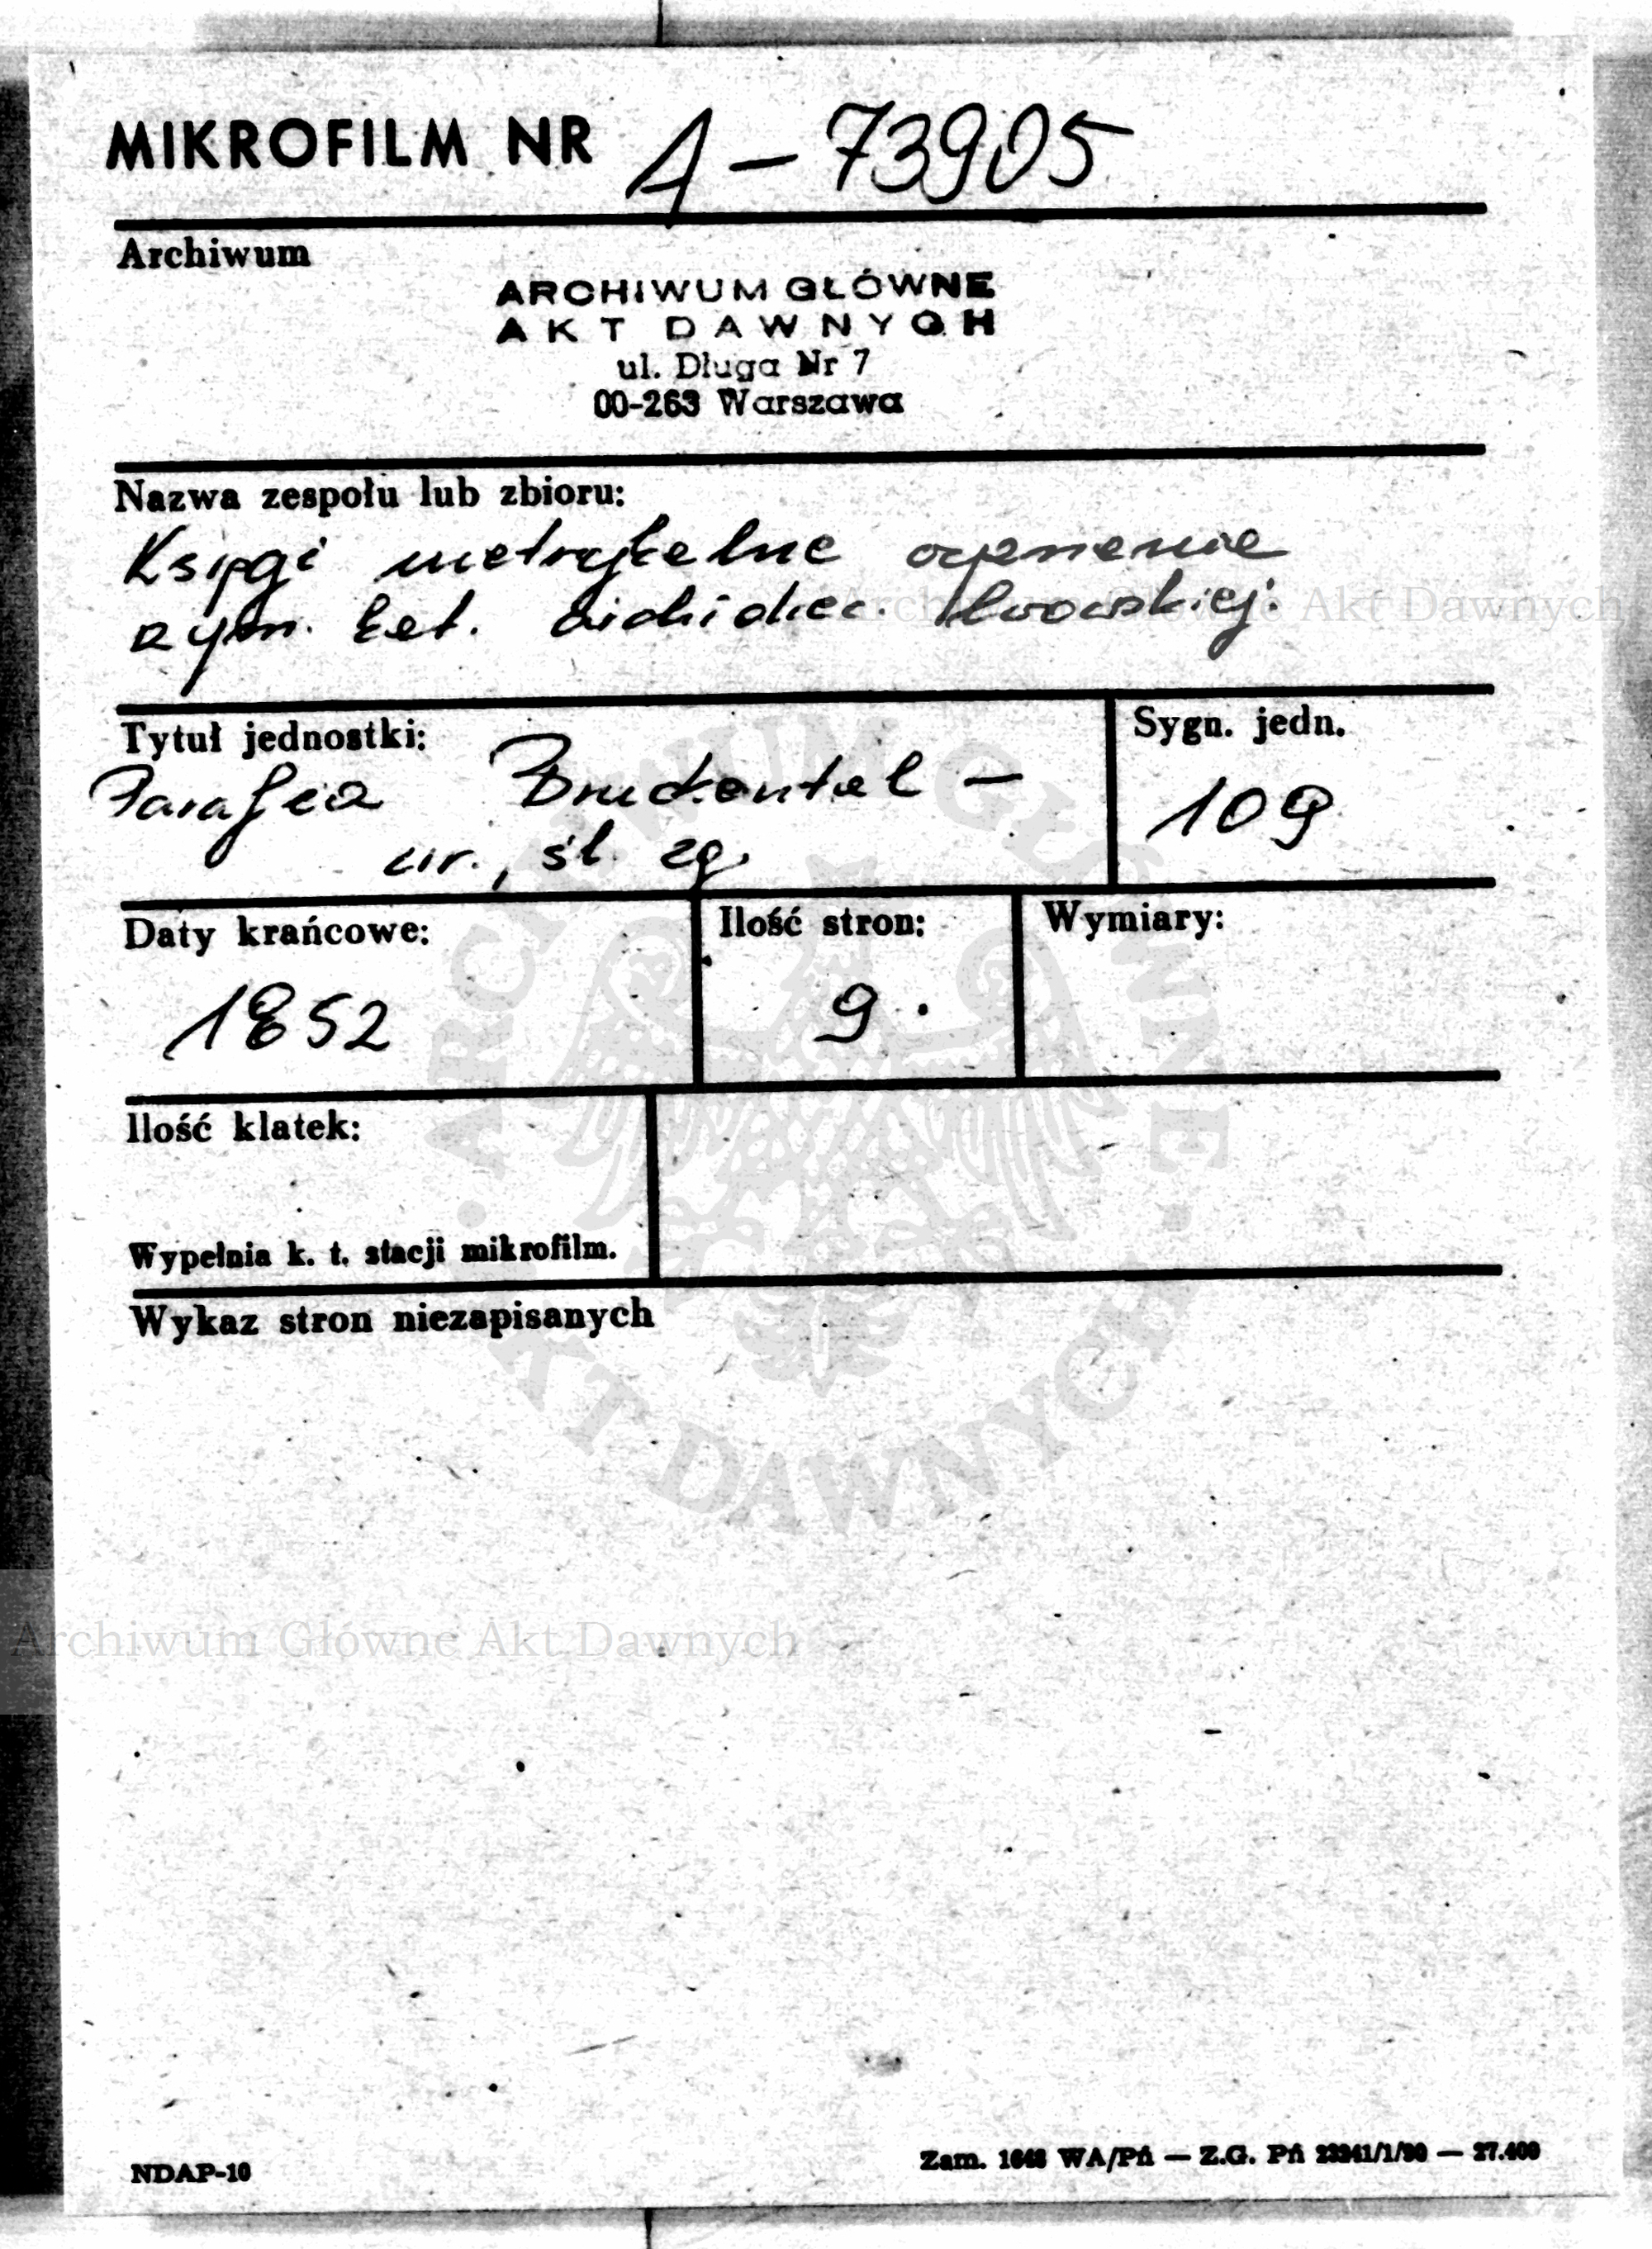 MIKROFILM NR A-73905
Archiwum
ARCHIWUM GŁÓWNE
AKT DAWNYCH
ul. Długa Nr 7
00-263 Warszawa
Nazwa zespołu lub zbioru:
Księgi metrykalne
rzym. kat. archidiec. lwowskiej.
Archiwum Główne Akt Dawnych
Tytuł jednostki:
Sygn. jedn.
Parafia Bruckental —
109
ur., śl. zg.
Daty krańcowe:
Ilość stron:
Wymiary:
1852
9.
Ilość klatek:
Wypełnia k. t. stacji mikrofilm.
Wykaz stron niezapisanych
ARCHIWUM GŁÓWNE • AKT DAWNYCH •
Archiwum Główne Akt Dawnych
NDAP-10
Zam. 1648 WA/Pń — Z.G. Pń 23941/1/90 — 27.400